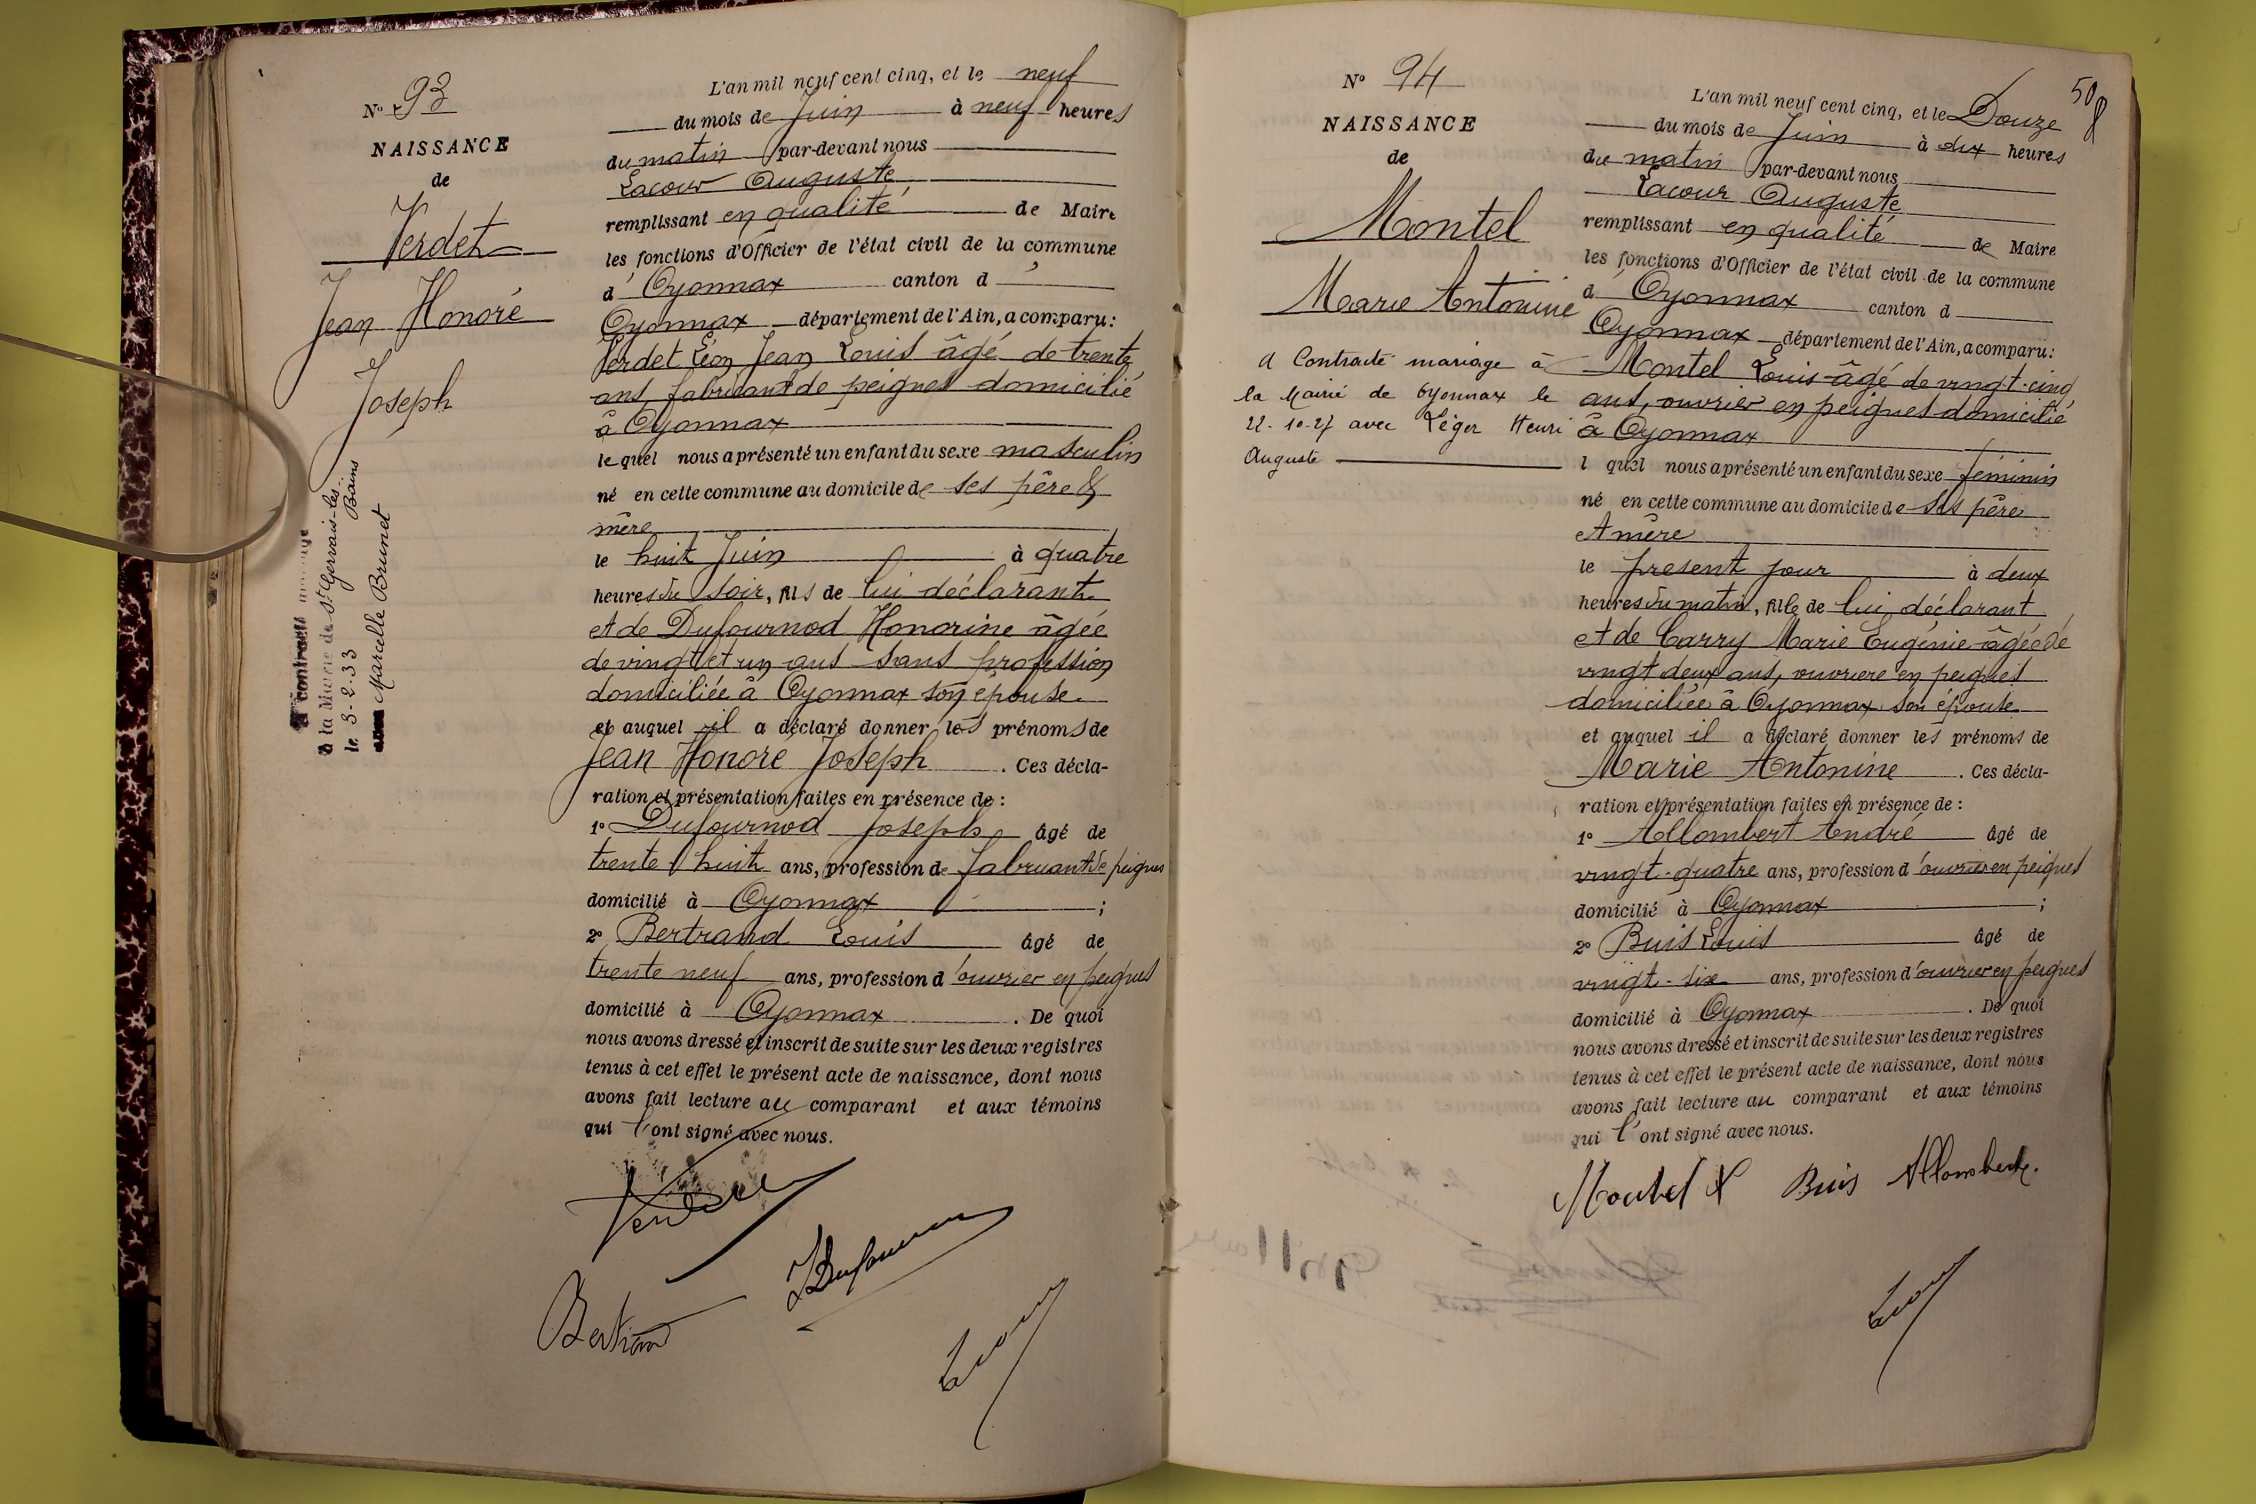 N° 93
NAISSANCE
de
Verdet
Jean Honoré
Joseph
a contracté mariage
à la Mairie de St Gervais-les-
Bains
le 3-2-33
avec Marcelle Brunet
L'an mil neuf cent cinq, et le neuf
du mois de Juin à neuf heures
du matin par-devant nous
Lacour Auguste
remplissant en qualité de Maire
les fonctions d'Officier de l'état civil de la commune
d'Oyonnax canton d'
Oyonnax département de l'Ain, a comparu:
Verdet Léon Jean Louis âgé de trente
ans, fabricant de peignes domicilié
à Oyonnax
lequel nous a présenté un enfant du sexe masculin
né en cette commune au domicile de ses père &
mère
le huit Juin à quatre
heures du soir, fils de lui déclarant
et de Dufournod Honorine âgée
de vingt et un ans sans profession
domiciliée à Oyonnax son épouse
et auquel il a déclaré donner les prénoms de
Jean Honoré Joseph. Ces décla-
ration et présentation faites en présence de :
1° Dufournod Joseph âgé de
trente huit ans, profession de fabricant de peignes
domicilié à Oyonnax ;
2° Bertrand Louis âgé de
trente neuf ans, profession d'ouvrier en peignes
domicilié à Oyonnax. De quoi
nous avons dressé et inscrit de suite sur les deux registres
tenus à cet effet le présent acte de naissance, dont nous
avons fait lecture au comparant et aux témoins
qui l'ont signé avec nous.
Bertrand
50
N° 94
NAISSANCE
de
Montel
Marie Antonine
A Contracté mariage à
la Mairie de Oyonnax le
22-10-27 avec Léger Henri
Auguste
L'an mil neuf cent cinq, et le Douze
du mois de Juin à dix heures
du matin par-devant nous
Lacour Auguste
remplissant en qualité de Maire
les fonctions d'Officier de l'état civil de la commune
d'Oyonnax canton d
Oyonnax département de l'Ain, a comparu:
Montel Louis âgé de vingt-cinq
ans, ouvrier en peignes domicilié
à Oyonnax
l quel nous a présenté un enfant du sexe féminin
né en cette commune au domicile de ses père
et mère
le présent jour à deux
heures du matin, fille de lui déclarant
et de Carry Marie Eugénie âgée de
vingt deux ans, ouvrière en peignes
domiciliée à Oyonnax son épouse
et auquel il a déclaré donner les prénoms de
Marie Antonine. Ces décla-
ration et présentation faites en présence de :
1° Allombert André âgé de
vingt-quatre ans, profession d'ouvrier en peignes
domicilié à Oyonnax ;
2° Buis Louis âgé de
vingt-six ans, profession d'ouvrier en peignes
domicilié à Oyonnax. De quoi
nous avons dressé et inscrit de suite sur les deux registres
tenus à cet effet le présent acte de naissance, dont nous
avons fait lecture au comparant et aux témoins
qui l'ont signé avec nous.
Montel Buis Allombert.